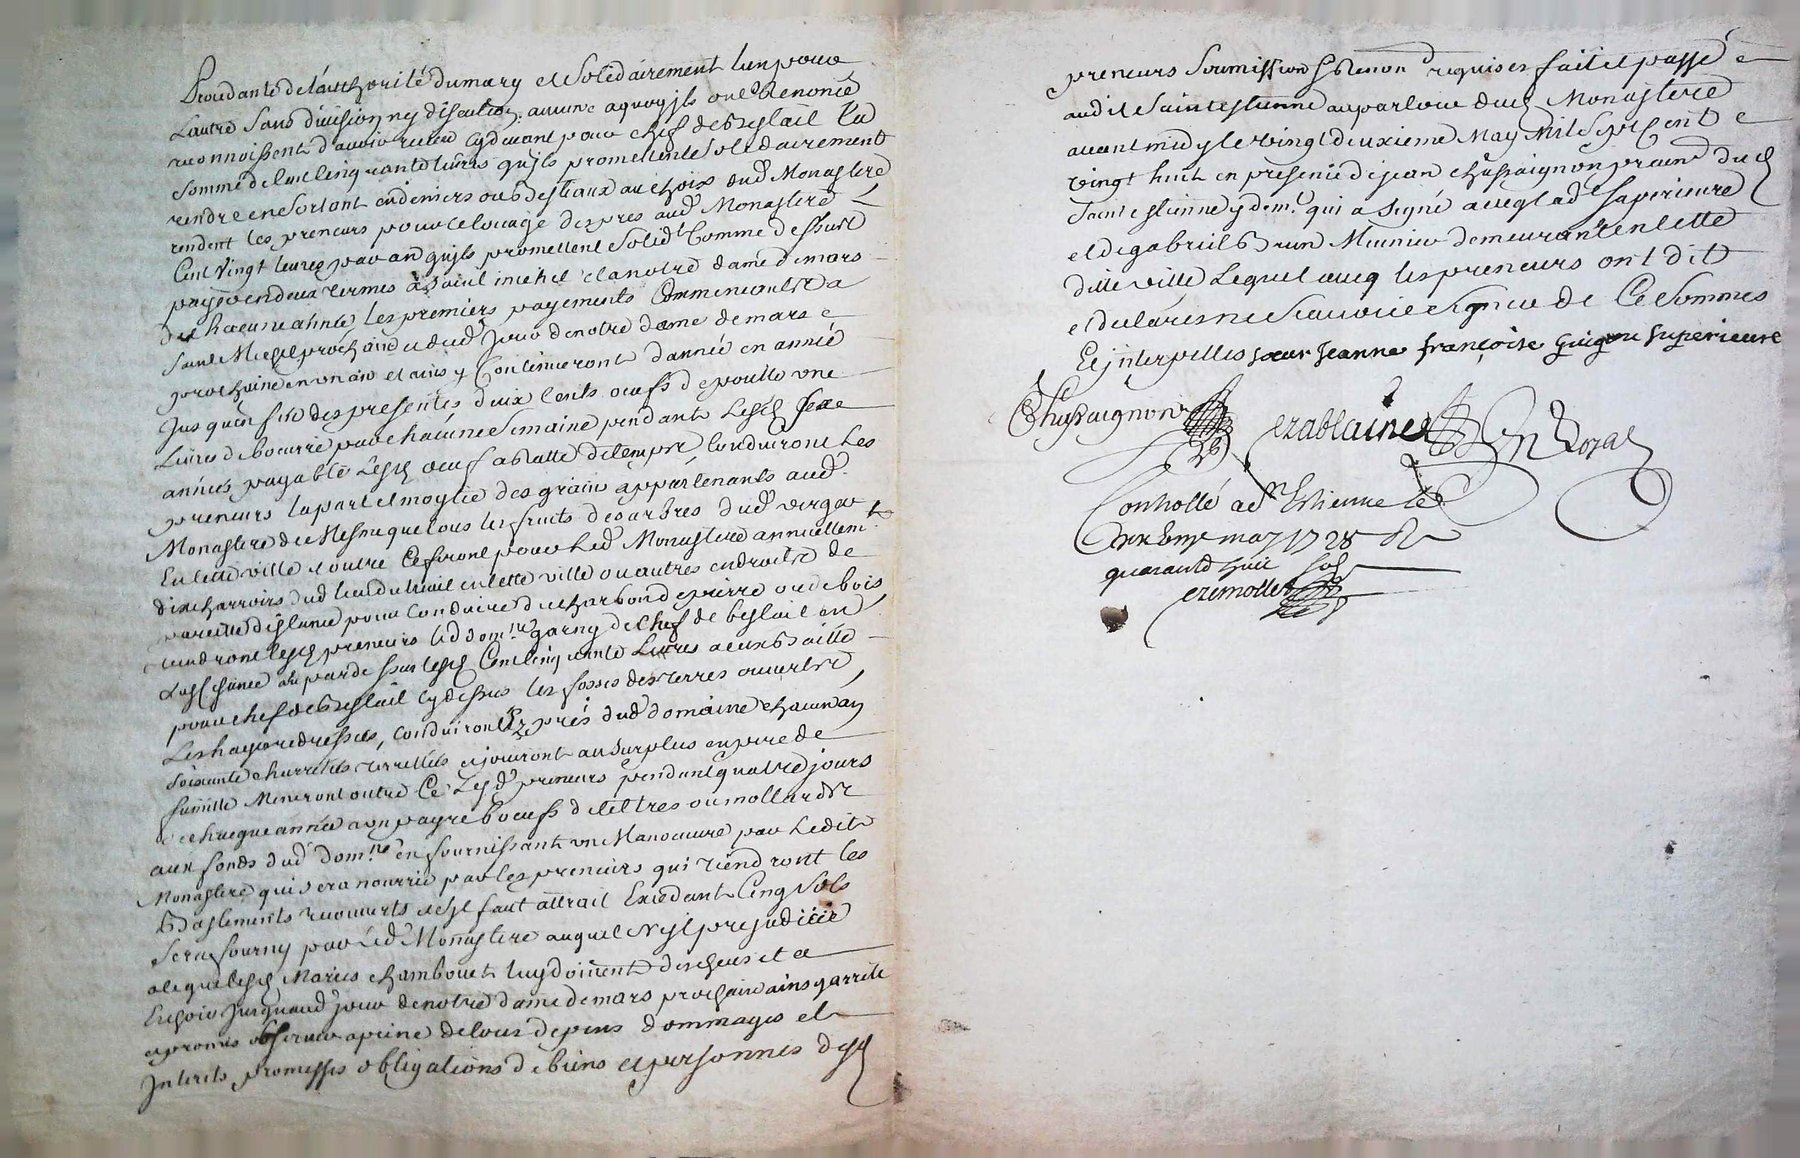 Procedante de lauthorité du mary et Solidairement lun pour
Lautre Sans division ny discution aucune aquoy ils ont Renoncé
reconnoissent davoir receu cydevant pour chef de Bestail La
Somme de Cent Cinquante livres quils promettent Solidairement
rendre en Sortant en deniers ou Bestiaux au choix dud Monastere
rendent les preneurs pour le louage des pres aud Monastere
Cent Vingt livres par an quils promettent Solidt Comme dessus
payer en deux termes a Saint michel et a notre dame de mars
de chacune année, les premiers payements Commenceront a
Saint Michel prochain et dud Jour de notre dame de mars
prochaine en un an et ainsy Continueront dannée en année
Jusqu'en fin des presentes deux Cents oeufs de poulle une
Livre de beurre par chacune Semaine pendant Lesd
années payable Lesd oeufs a datte de temps, Conduiront Les
preneurs la part et moytié des grains appartenants aud
Monastere de Mesme que tous les fruits des arbres dud verger
En cette ville et outre Ce feront pour Led Monastere annuellemt
dix charrois dud lieu du treuil en cette ville ou autres endroits de
pareille distance pour Conduire du charbon de pierre ou de bois
tiendront lesd preneurs led domne garny de chef de bestail en
suffisance au par dessus lesd Cent Cinquante Livres a eux Baillé
pour chef de Bestail Cydessus les fossés des terres ouverts
Les hayes redressées, conduiront Ez prés dud domaine chacun an
Soixante charretées terrelles et jouiront au Surplus en pere de
famille Meneront outre Ce Lesd preneurs pendant quatre jours
de chaque année a un payre boeufs
aux fonds dud domne en fournissant un Manoeuvre par Ledit
Monastere qui sera nourrie par les preneurs qui tiendront les
Bastements recouverts et Sil faut attrait Excedant Cinq Sols
Sera fourny par Led Monastere auquel Nest prejudicié
a ce que lesd Mariés chambouet luy doivent descheus et a
Escheoir Jusquaud Jour de notre dame de mars prochain ainsy arrété
et promis observer a peine de tous depens dommages et
Interets promesses obligations de biens et personnes desd
preneurs Soumission Renon requises fait et passé
audit Saint estienne au parloir dud Monastere
avant midy le vingt deuxieme May Mil Sept Cent
vingt huit en presence de jean chassaignon praticn dud
Saint estienne y demt qui a Signé avec lad Superieure
et de gabriel Brun Meunier demeurant en cette
ditte ville Lequel avecq les preneurs ont dit
et declarés ne Scavoir Signer de Ce Sommes
Et interpellés soeur Jeanne françoise superieure
Chassaignon ezablaines
Controllé a St Estienne le
may 1728
quarante huit sols